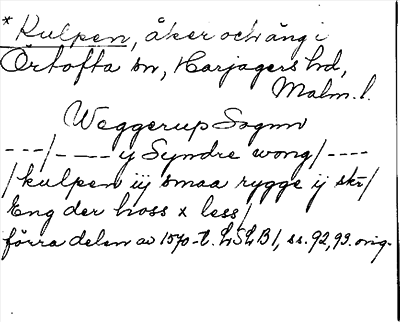 * Kulpen, åker och äng i
Örtofta sn, Harjagers hd,
Malm. l.
Weggerup Sognn
---/---- y Syndre wong/----
/kulpen iij smaa rygge ij skr/
Eng der hoss x less/
förra delen av 1570-t. LSLB 1, ss. 92, 93. orig.